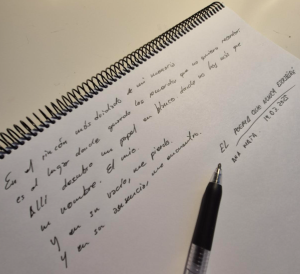 En el rincón más distante de mi memoria
es el lugar donde guardo los recuerdos que no quiero recordar.
Allí descubro un papel en blanco donde no hay más que
un nombre. El mío.
Y en su vacío, me pierdo.
Y en su ausencia, me encuentro.
EL POEMA QUE NUNCA ESCRIBÍ